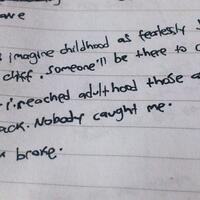 imagine childhood as fearlessly
cliff. someone'll be there to
i reached adulthood those
Nobody caught me.
broke.